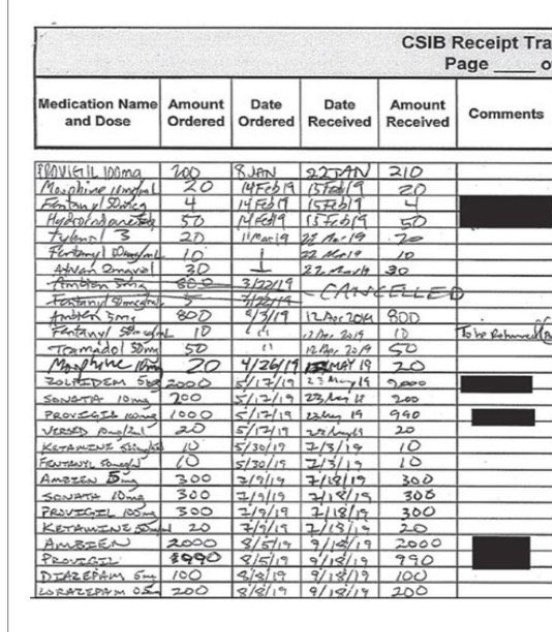 CSIB Receipt Tra
Page ____ o
Medication Name and Dose Amount Ordered Date Ordered Date Received Amount Received Comments
PROVIGIL 100mg 200 8 JAN 22 JAN 210
Morphine 10mg/mL 20 14Feb19 15Feb19 20
Fentanyl 50mcg 4 14Feb19 15Feb19 4
50 14Feb19 15Feb19 50
Tylenol 3 20 11Mar19 22 Mar 19 20
Fentanyl 50mcg/mL 10 22 Mar 19 10
Ativan 2mg/vial 30 22 Mar 19 30
Ambien 5mg 800 3/22/19 CANCELLED
Fentanyl 50mcg/mL 5 3/22/19
Ambien 5mg 800 4/3/19 12 Apr 2019 800
Fentanyl 50mcg/mL 10 " 12 Apr 2019 10 To be Returned
Tramadol 50mg 50 " 12 Apr 2019 50
Morphine 10mg 20 4/26/19 MAY 19 20
ZOLPIDEM 5mg 2000 5/17/19 23 May 19 2000
SONATA 10mg 200 5/17/19 23 May 19 200
PROVIGIL 100mg 1000 5/17/19 23 May 19 990
VERSED 10mg/2ml 20 5/17/19 20
KETAMINE 10 5/30/19 7/3/19 10
FENTANYL 50mcg/ml 10 5/30/19 7/3/19 10
AMBIEN 5mg 300 7/9/19 7/18/19 300
SONATA 10mg 300 7/9/19 7/18/19 300
PROVIGIL 100mg 300 7/9/19 7/18/19 300
KETAMINE 50 20 7/9/19 7/18/19 20
AMBIEN 2000 8/5/19 9/18/19 2000
PROVIGIL 990 8/5/19 9/18/19 990
DIAZEPAM 5mg 100 8/8/19 9/18/19 100
LORAZEPAM 0.5mg 200 8/8/19 9/18/19 200